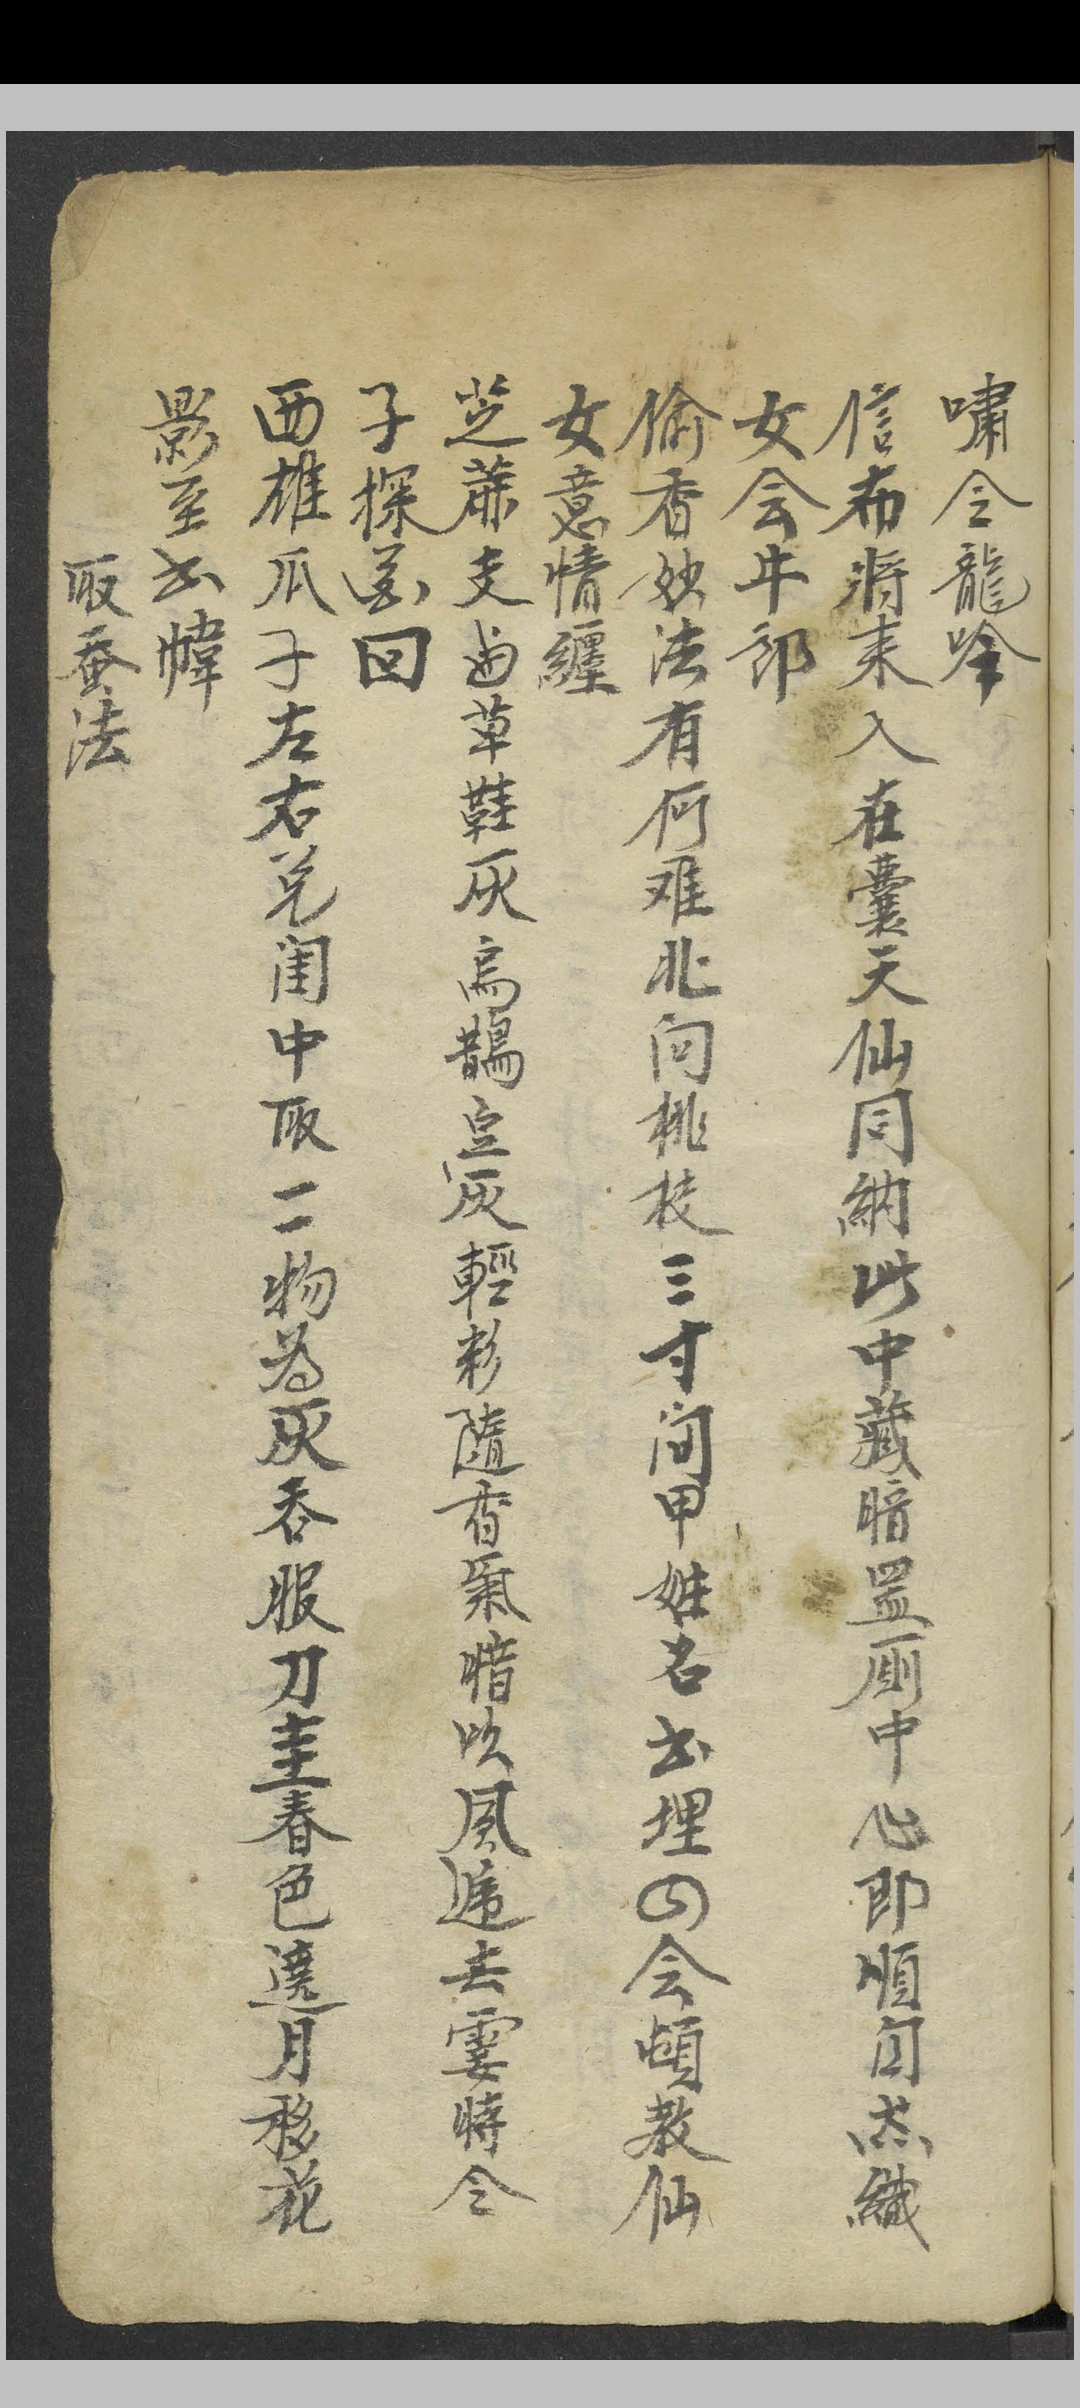 嘯令龍吟
信布將来入在囊天仙同納此中藏暗置厠中心即順自然織
女会牛郎
偷香妙法有何难北向桃枝三寸间甲姓名出埋四会頓教仙
女意情纏
芝蔴支齿草鞋灰烏鵲皇灰輕彩隨香氣暗吹風遞去霎時令
子探回
西雄瓜子左右兑闺中取二物为灰吞服刀圭春色遶月移花
影至出幃
取蚕法